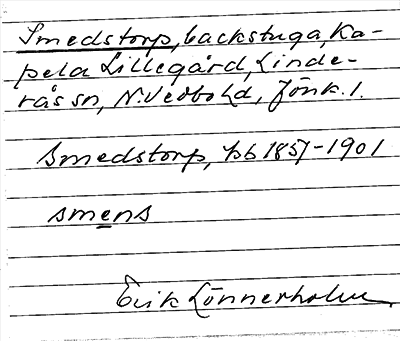 Smedstorp, backstuga, Ka-
pela Lillegård, Linde-
rås sn, N. Vedbo hd, Jönk. l.
Smedstorp, hb 1857-1901
smens
Erik Lönnerholm